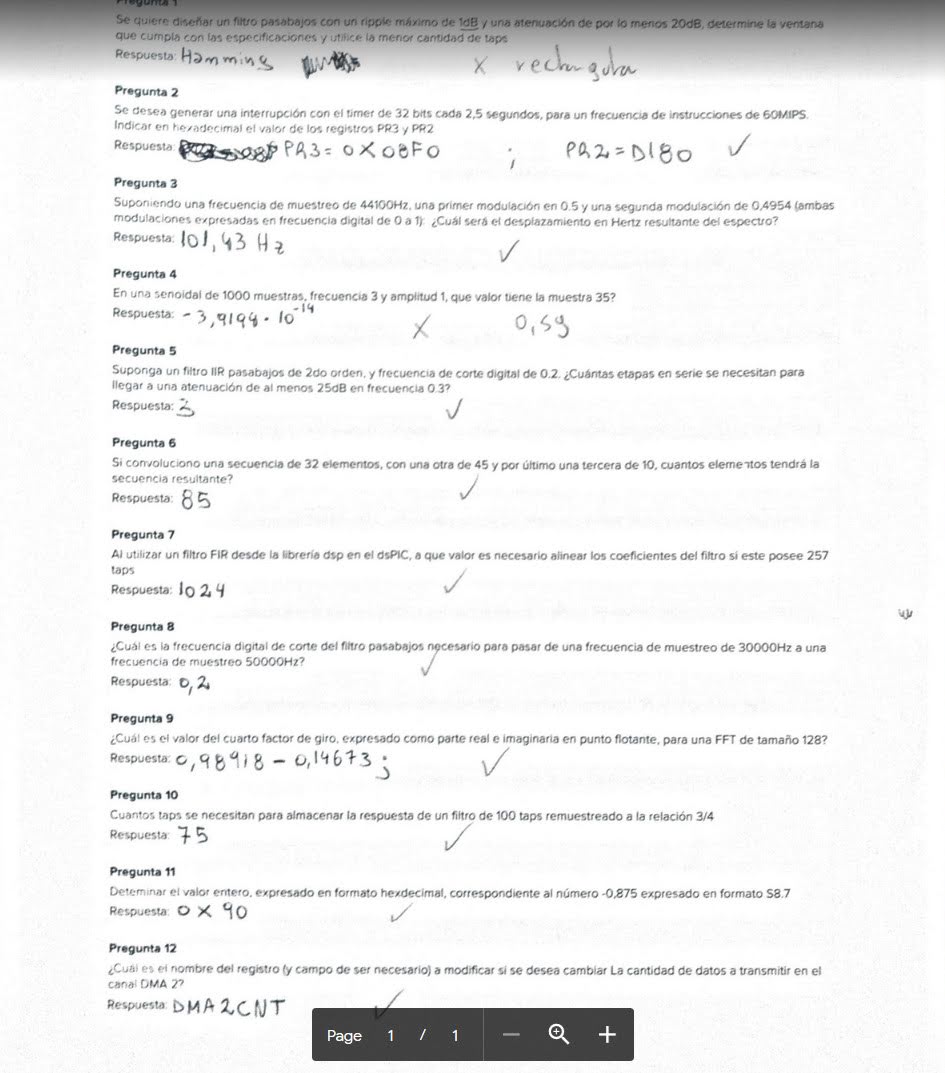 Pregunta 1
Se quiere diseñar un filtro pasabajos con un ripple máximo de 1dB y una atenuación de por lo menos 20dB, determine la ventana
que cumpla con las especificaciones y utilice la menor cantidad de taps
Respuesta: Hamming X rectangular
Pregunta 2
Se desea generar una interrupción con el timer de 32 bits cada 2,5 segundos, para un frecuencia de instrucciones de 60MIPS.
Indicar en hexadecimal el valor de los registros PR3 y PR2
Respuesta: PR3 = 0X08F0 ; PR2 = D180 ✓
Pregunta 3
Suponiendo una frecuencia de muestreo de 44100Hz, una primer modulación en 0.5 y una segunda modulación de 0,4954 (ambas
modulaciones expresadas en frecuencia digital de 0 a 1): ¿Cuál será el desplazamiento en Hertz resultante del espectro?
Respuesta: 101,43 Hz ✓
Pregunta 4
En una senoidal de 1000 muestras, frecuencia 3 y amplitud 1, que valor tiene la muestra 35?
Respuesta: -3,9198 · 10⁻¹⁴ X 0,59
Pregunta 5
Suponga un filtro IIR pasabajos de 2do orden, y frecuencia de corte digital de 0.2. ¿Cuántas etapas en serie se necesitan para
llegar a una atenuación de al menos 25dB en frecuencia 0.3?
Respuesta: 3 ✓
Pregunta 6
Si convoluciono una secuencia de 32 elementos, con una otra de 45 y por último una tercera de 10, cuantos elementos tendrá la
secuencia resultante?
Respuesta: 85 ✓
Pregunta 7
Al utilizar un filtro FIR desde la librería dsp en el dsPIC, a que valor es necesario alinear los coeficientes del filtro si este posee 257
taps
Respuesta: 1024 ✓
Pregunta 8
¿Cuál es la frecuencia digital de corte del filtro pasabajos necesario para pasar de una frecuencia de muestreo de 30000Hz a una
frecuencia de muestreo 50000Hz?
Respuesta: 0,2 ✓
Pregunta 9
¿Cuál es el valor del cuarto factor de giro, expresado como parte real e imaginaria en punto flotante, para una FFT de tamaño 128?
Respuesta: 0,98918 - 0,14673 j ✓
Pregunta 10
Cuantos taps se necesitan para almacenar la respuesta de un filtro de 100 taps remuestreado a la relación 3/4
Respuesta: 75 ✓
Pregunta 11
Deteminar el valor entero, expresado en formato hexdecimal, correspondiente al número -0,875 expresado en formato S8.7
Respuesta: 0 X 90 ✓
Pregunta 12
¿Cuál es el nombre del registro (y campo de ser necesario) a modificar si se desea cambiar La cantidad de datos a transmitir en el
canal DMA 2?
Respuesta: DMA2CNT ✓
Page 1 / 1